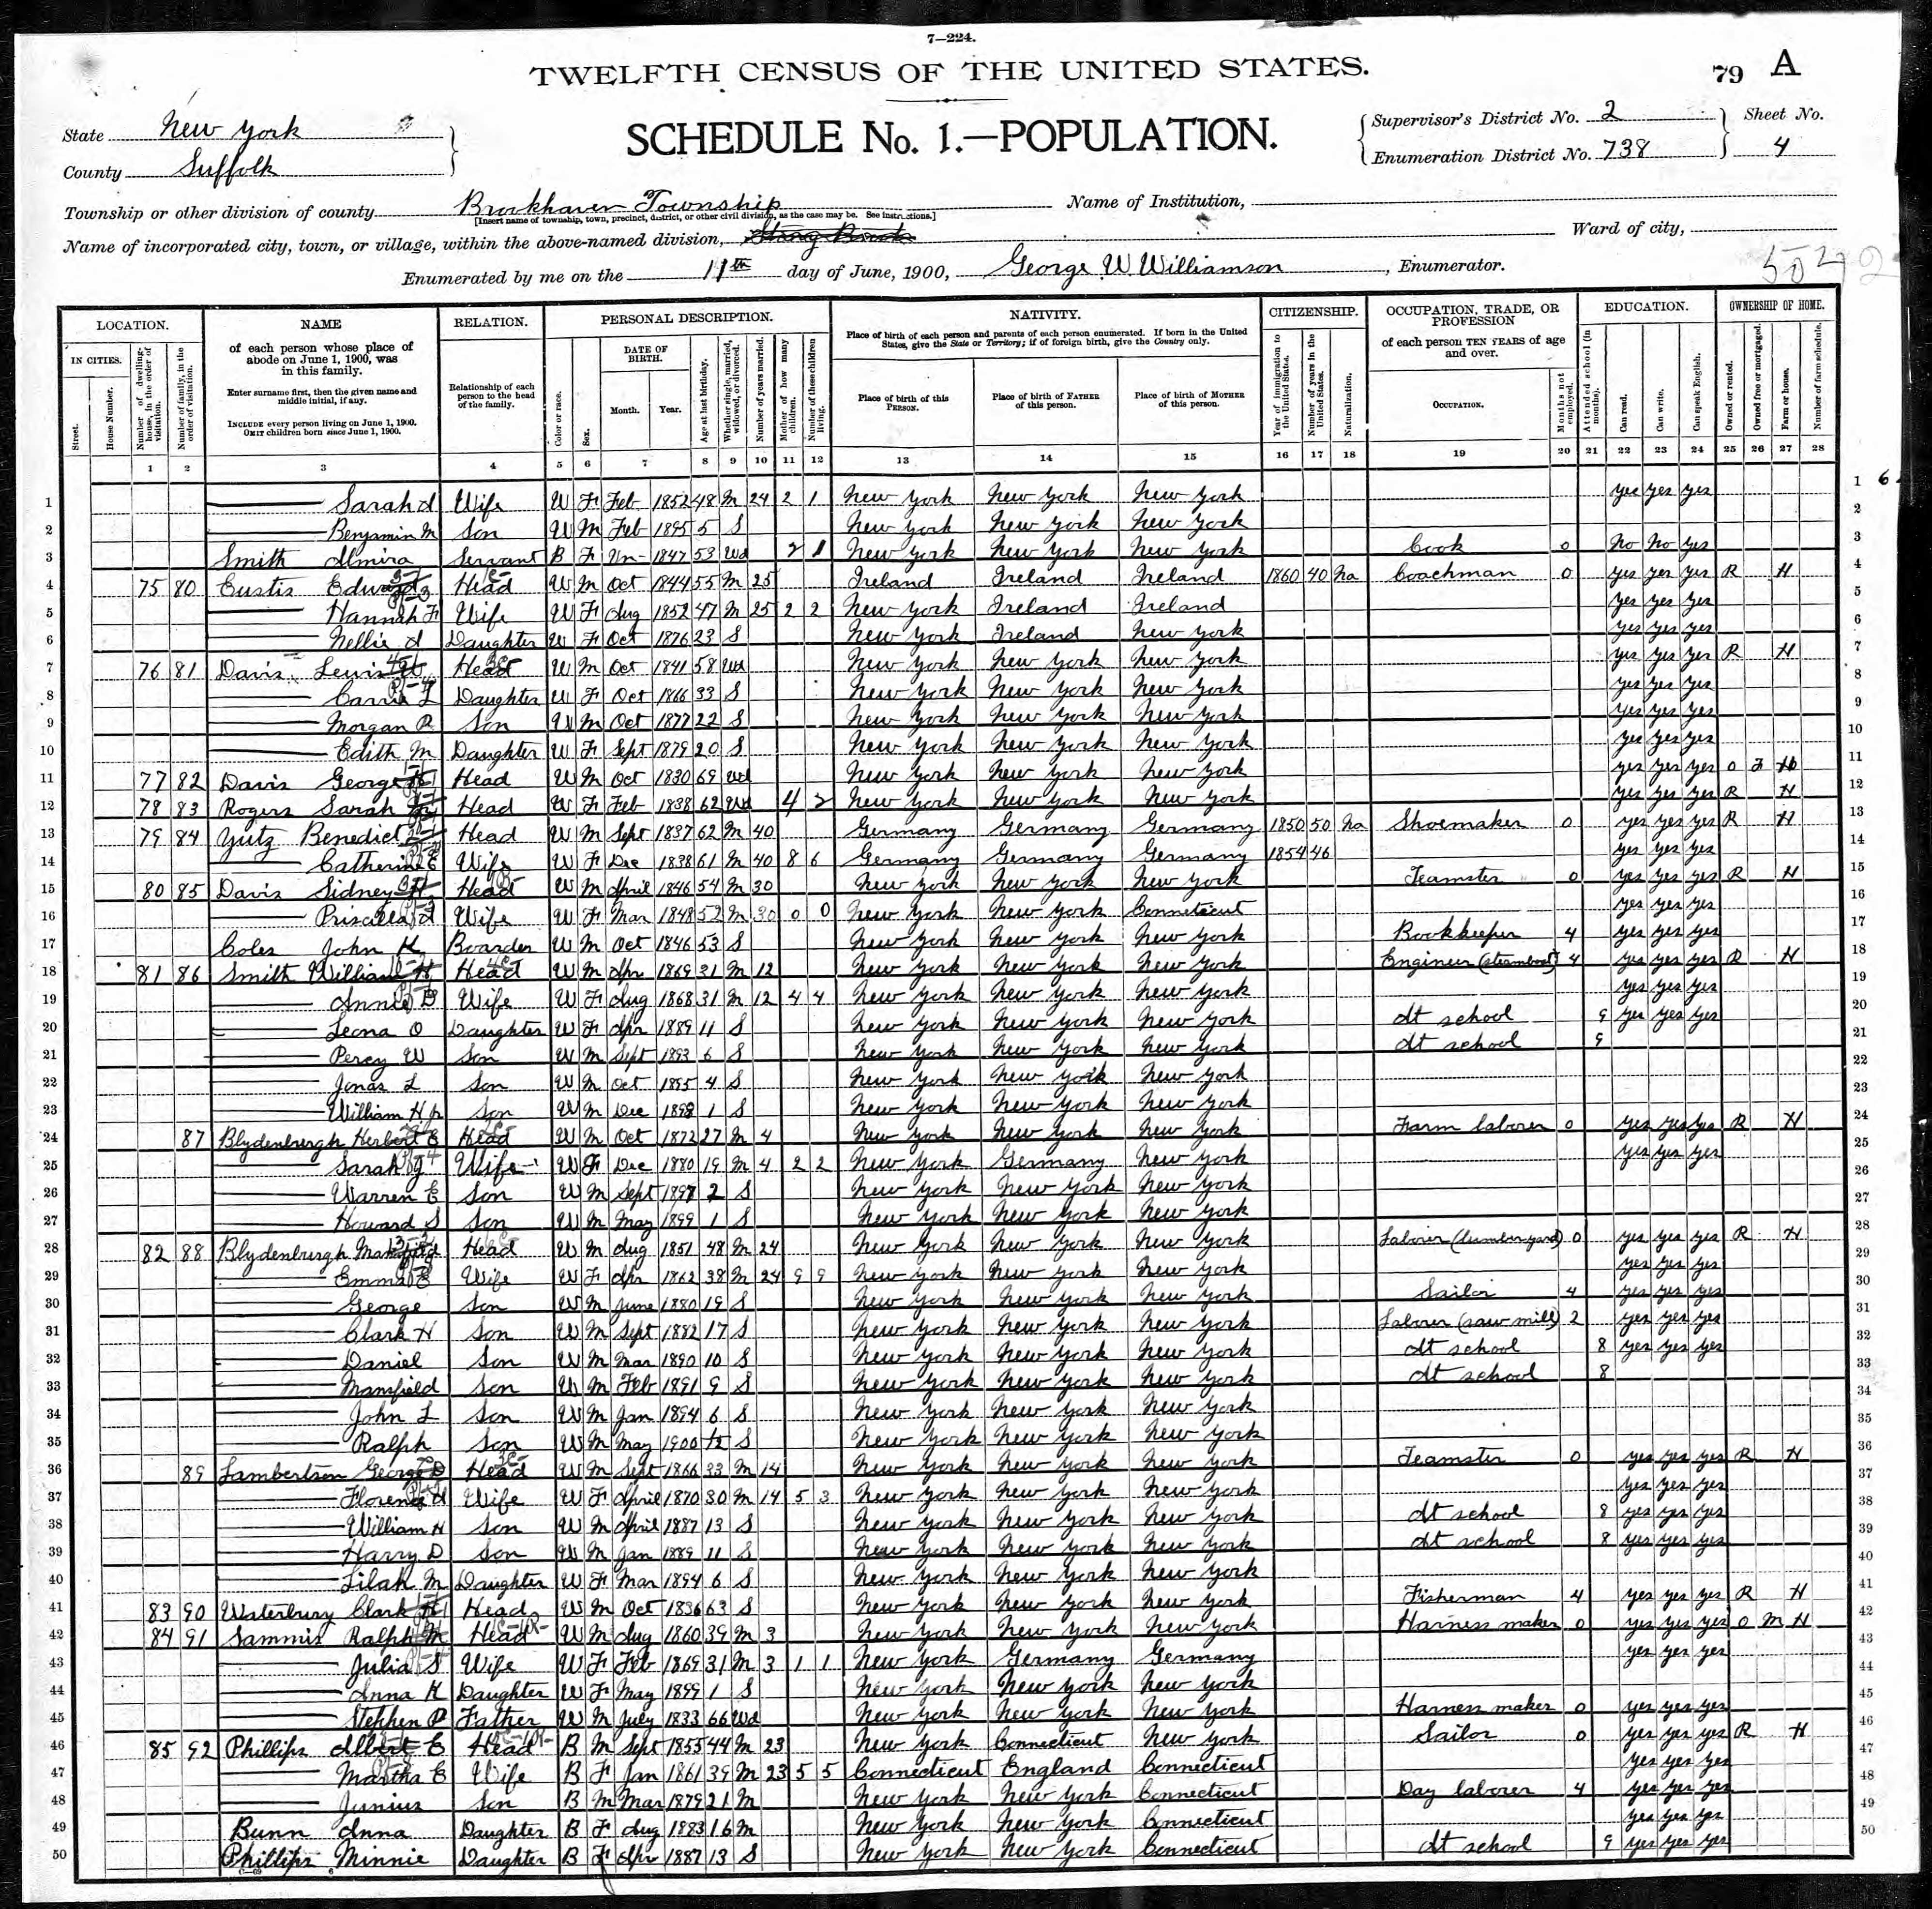 7—224.
TWELFTH CENSUS OF THE UNITED STATES.
79 A
State New York
County Suffolk
SCHEDULE No. 1.—POPULATION.
Supervisor's District No. 2
Enumeration District No. 738
Sheet No.
4
Township or other division of county Brookhaven Township
[Insert name of township, town, precinct, district, or other civil division, as the case may be. See instructions.]
Name of Institution,
Name of incorporated city, town, or village, within the above-named division,
Ward of city,
Enumerated by me on the 11th day of June, 1900, George W Williamson, Enumerator.
LOCATION. NAME RELATION. PERSONAL DESCRIPTION. NATIVITY. CITIZENSHIP. OCCUPATION, TRADE, OR PROFESSION EDUCATION. OWNERSHIP OF HOME.
IN CITIES. Street. House Number. Number of dwelling-house, in the order of visitation. Number of family, in the order of visitation.
of each person whose place of abode on June 1, 1900, was in this family.
Enter surname first, then the given name and middle initial, if any.
INCLUDE every person living on June 1, 1900. OMIT children born since June 1, 1900.
Relationship of each person to the head of the family.
Color or race. Sex. DATE OF BIRTH. Month. Year. Age at last birthday. Whether single, married, widowed, or divorced. Number of years married. Mother of how many children. Number of these children living.
Place of birth of each person and parents of each person enumerated. If born in the United States, give the State or Territory; if of foreign birth, give the Country only.
Place of birth of this PERSON. Place of birth of FATHER of this person. Place of birth of MOTHER of this person.
Year of immigration to the United States. Number of years in the United States. Naturalization.
of each person TEN YEARS of age and over.
OCCUPATION. Months not employed.
Attended school (in months). Can read. Can write. Can speak English.
Owned or rented. Owned free or mortgaged. Farm or house. Number of farm schedule.
1 2 3 4 5 6 7 8 9 10 11 12 13 14 15 16 17 18 19 20 21 22 23 24 25 26 27 28
1 Sarah A Wife W F Feb 1852 48 M 24 2 1 New York New York New York yes yes yes 1
2 Benjamin M Son W M Feb 1895 5 S New York New York New York 2
3 Smith Almira Servant B F Un- 1847 53 Wd 2 1 New York New York New York Cook 0 No No yes 3
4 75 80 Eustis Head W M Oct 1844 55 M 25 Ireland Ireland Ireland 1860 40 Na Coachman 0 yes yes yes R H 4
5 Hannah F Wife W F Aug 1852 47 M 25 2 2 New York Ireland Ireland yes yes yes 5
6 Nellie A Daughter W F Oct 1876 23 S New York Ireland New York yes yes yes 6
7 76 81 Davis Lewis Head W M Oct 1841 58 Wd New York New York New York yes yes yes R H 7
8 Carrie L Daughter W F Oct 1866 33 S New York New York New York yes yes yes 8
9 Morgan R Son W M Oct 1877 22 S New York New York New York yes yes yes 9
10 Edith M Daughter W F Sept 1879 20 S New York New York New York yes yes yes 10
11 77 82 Davis George Head W M Oct 1830 69 Wd New York New York New York yes yes yes O F H 11
12 78 83 Rogers Sarah Head W F Feb 1838 62 Wd 4 2 New York New York New York yes yes yes R H 12
13 79 84 Yutz Benedict Head W M Sept 1837 62 M 40 Germany Germany Germany 1850 50 Na Shoemaker 0 yes yes yes R H 13
14 Catherine E Wife W F Dec 1838 61 M 40 8 6 Germany Germany Germany 1854 46 yes yes yes 14
15 80 85 Davis Sidney H Head W M April 1846 54 M 30 New York New York New York Teamster 0 yes yes yes R H 15
16 Priscilla A Wife W F Mar 1848 52 M 30 0 0 New York New York Conneticut yes yes yes 16
17 Coles John K Boarder W M Oct 1846 53 S New York New York New York Bookkeeper 4 yes yes yes 17
18 81 86 Smith William H Head W M Apr 1869 31 M 12 New York New York New York Engineer (steamboat) 4 yes yes yes R H 18
19 Annie B Wife W F Aug 1868 31 M 12 4 4 New York New York New York yes yes yes 19
20 Leona O Daughter W F Apr 1889 11 S New York New York New York At school 9 yes yes yes 20
21 Percy W Son W M Sept 1893 6 S New York New York New York At school 9 21
22 Jonas L Son W M Oct 1895 4 S New York New York New York 22
23 William H jr Son W M Dec 1898 1 S New York New York New York 23
24 87 Blydenburgh Herbert E Head W M Oct 1872 27 M 4 New York New York New York Farm laborer 0 yes yes yes R H 24
25 Sarah J Wife W F Dec 1880 19 M 4 2 2 New York Germany New York yes yes yes 25
26 Warren E Son W M Sept 1897 2 S New York New York New York 26
27 Howard S Son W M May 1899 1 S New York New York New York 27
28 82 88 Blydenburgh Mansfield Head W M Aug 1851 48 M 24 New York New York New York Laborer (lumber yard) 0 yes yes yes R H 28
29 Emma E Wife W F Apr 1862 38 M 24 9 9 New York New York New York yes yes yes 29
30 George Son W M June 1880 19 S New York New York New York Sailor 4 yes yes yes 30
31 Clark H Son W M Sept 1882 17 S New York New York New York Laborer (saw mill) 2 yes yes yes 31
32 Daniel Son W M Mar 1890 10 S New York New York New York At school 8 yes yes yes 32
33 Mansfield Son W M Feb 1891 9 S New York New York New York At school 8 33
34 John L Son W M Jan 1894 6 S New York New York New York 34
35 Ralph Son W M May 1900 S New York New York New York 35
36 89 Lambertson George D Head W M Sept 1866 33 M 14 New York New York New York Teamster 0 yes yes yes R H 36
37 Florence H Wife W F April 1870 30 M 14 5 3 New York New York New York yes yes yes 37
38 William H Son W M April 1887 13 S New York New York New York At school 8 yes yes yes 38
39 Harry D Son W M Jan 1889 11 S New York New York New York At school 8 yes yes yes 39
40 Lilah M Daughter W F Mar 1894 6 S New York New York New York 40
41 83 90 Waterbury Clark Head W M Oct 1836 63 S New York New York New York Fisherman 4 yes yes yes R H 41
42 84 91 Sammis Ralph M Head W M Aug 1860 39 M 3 New York New York New York Harness maker 0 yes yes yes O M H 42
43 Julia S Wife W F Feb 1869 31 M 3 1 1 New York Germany Germany yes yes yes 43
44 Anna K Daughter W F May 1899 1 S New York New York New York 44
45 Stephen P Father W M July 1833 66 Wd New York New York New York Harness maker 0 yes yes yes 45
46 85 92 Phillips Albert E Head B M Sept 1855 44 M 23 New York Connecticut New York Sailor 0 yes yes yes R H 46
47 Martha E Wife B F Jan 1861 39 M 23 5 5 Connecticut England Connecticut yes yes yes 47
48 Junius Son B M Mar 1879 21 M New York New York Connecticut Day laborer 4 yes yes yes 48
49 Bunn Anna Daughter B F Aug 1883 16 M New York New York Connecticut yes yes yes 49
50 Phillips Minnie Daughter B F Apr 1887 13 S New York New York Connecticut At school 9 yes yes yes 50